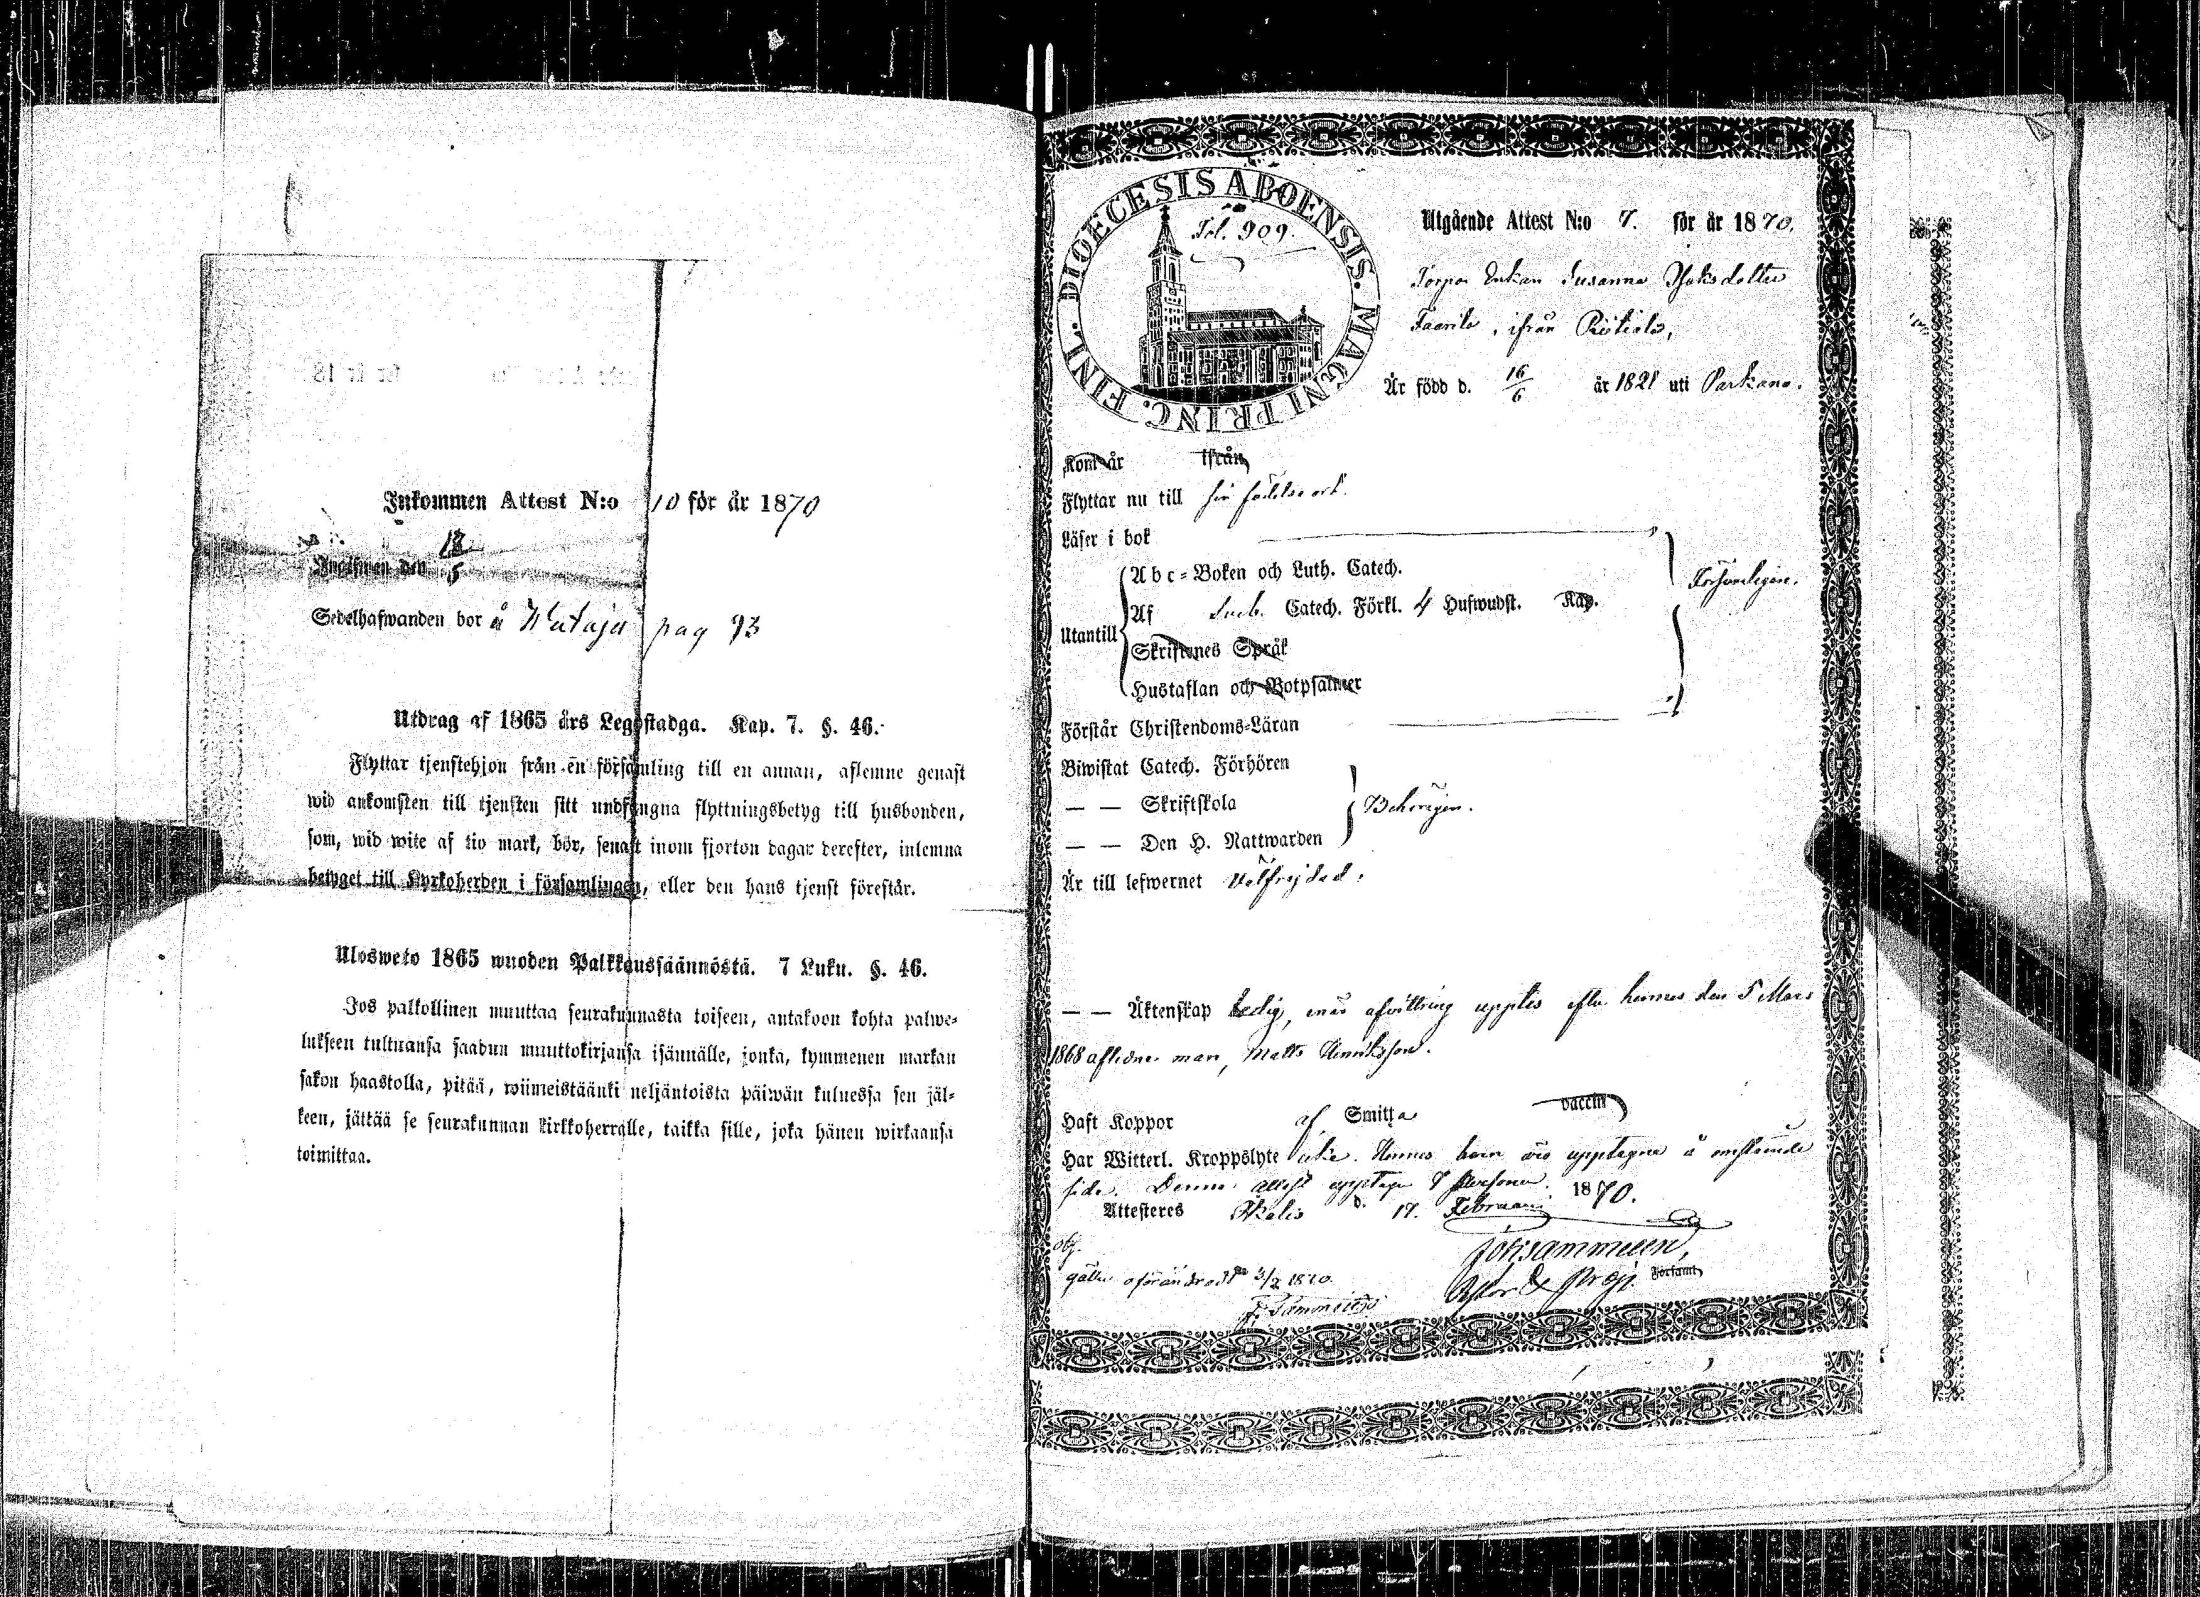 Inkommen Attest N:o 10 för år 1870
Inkommen den 18/5
Sedelhafwanden bor å Wataja pag 93
Utdrag af 1865 års Legostadga. Kap. 7. §. 46.
Flyttar tjenstehjon från en församling till en annan, aflemne genast
wid ankomsten till tjensten sitt undfångna flyttningsbetyg till husbonden,
som, wid wite af tio mark, bör, senast inom fjorton dagar derefter, inlemna
betyget till Kyrkoherden i församlingen, eller den hans tjenst förestår.
Ulosweto 1865 wuoden Palkkaussäännöstä. 7 Luku. §. 46.
Jos palkollinen muuttaa seurakunnasta toiseen, antakoon kohta palwe-
lukseen tultuansa saadun muuttokirjansa isännälle, jonka, kymmenen markan
sakon haastolla, pitää, wiimeistäänki neljäntoista päiwän kuluessa sen jäl-
keen, jättää se seurakunnan kirkkoherralle, taikka sille, joka hänen wirkaansa
toimittaa.
FINL. DIOECESIS ÅBOENSIS. MAGNI PRINC.
Fol. 909.
Utgående Attest N:o 7. för år 1870.
Torpar Enkan Susanna Isaksdotter
ifrån
Är född d. 16/6 år 1821 uti Parkano.
Kom år ifrån
Flyttar nu till sin födelse ort.
Läser i bok
Utantill
Abc-Boken och Luth. Catech.
Af Sveb. Catech. Förkl. 4 Hufwudst. Kap.
Skriftenes Språk
Hustaflan och Botpsalmer
Försvarligen.
Förstår Christendoms-Läran
Biwistat Catech. Förhören
— — Skriftskola
— — Den H. Nattwarden
Behörigen.
Är till lefwernet Välfrejdad.
— — Äktenskap Ledig, enär afvittring upptes efter hennes den 5 Mars
1868 aflidne man, Matts Henriksson.
Haft Koppor af Smitta vaccin
Har Witterl. Kroppslyte icke. Hennes barn äro upptagne å omstående
sida. Denna attest upptager 7 personer.
Attesteres d. 17. Februari 1870.
gäller oförändrad 1870.
Församl.